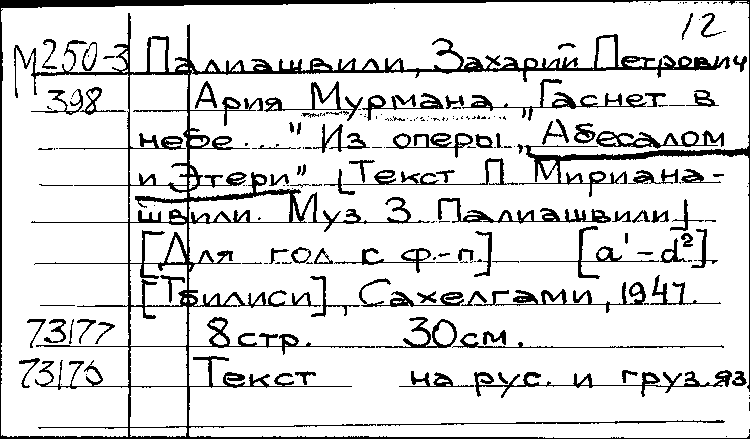 12
М250-3 Палиашвили, Захарий Петрович
398 Ария Мурмана. „Гаснет в
небе..." Из оперы „Абесалом
и Этери" [Текст П. Мириана-
швили. Муз. З. Палиашвили]
[Для гол. с ф.-п.] [a¹-d²].
[Тбилиси], Сахелгами, 1947.
73177 8 стр. 30 см.
73176 Текст на рус. и груз. яз.